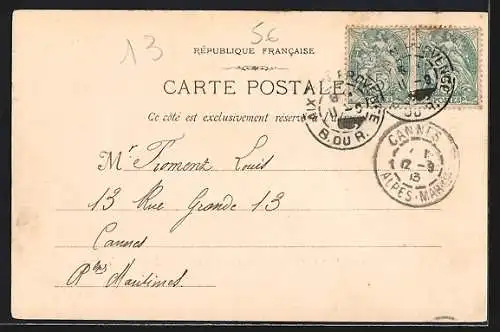 13
56
RÉPUBLIQUE FRANÇAISE
CARTE POSTALE
Ce côté est exclusivement réservé
AIX PROVENCE
B. DU R.
CANNES
12-9
ALPES-MAR
Mr Froment Louis
13 Rue Grande 13
Cannes
Alpes Maritimes